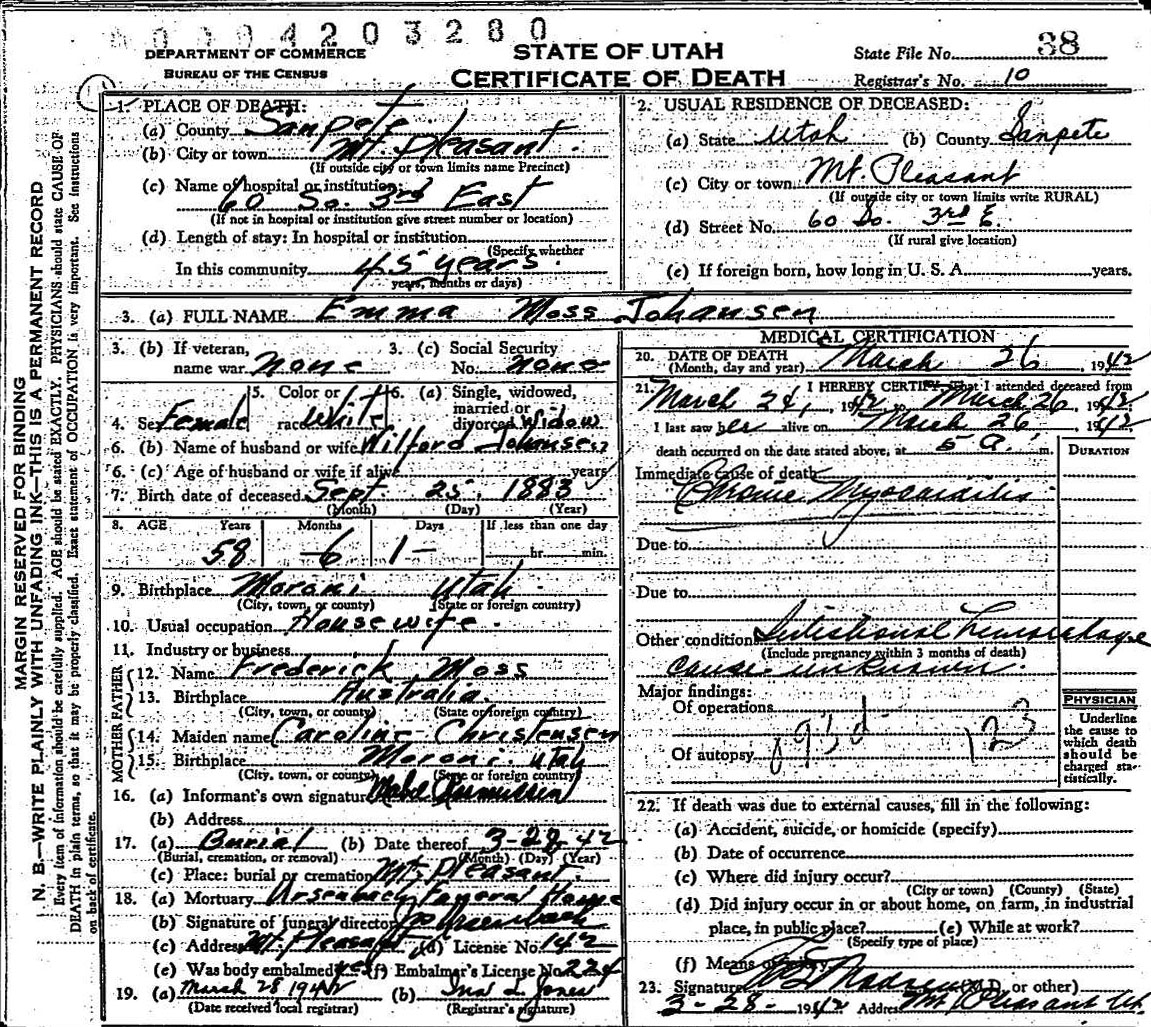 00094203280
DEPARTMENT OF COMMERCE
BUREAU OF THE CENSUS
STATE OF UTAH
CERTIFICATE OF DEATH
State File No. 38
Registrar's No. 10
MARGIN RESERVED FOR BINDING
N. B.—WRITE PLAINLY WITH UNFADING INK—THIS IS A PERMANENT RECORD
Every item of information should be carefully supplied. AGE should be stated EXACTLY. PHYSICIANS should state CAUSE OF
DEATH in plain terms, so that it may be properly classified. Exact statement of OCCUPATION is very important. See instructions
on back of certificate.
1. PLACE OF DEATH:
(a) County Sanpete
(b) City or town Mt. Pleasant.
(If outside city or town limits name Precinct)
(c) Name of hospital or institution:
60 So. 3rd East
(If not in hospital or institution give street number or location)
(d) Length of stay: In hospital or institution
(Specify whether
In this community 45 years.
years, months or days)
2. USUAL RESIDENCE OF DECEASED:
(a) State Utah (b) County Sanpete
(c) City or town Mt. Pleasant
(If outside city or town limits write RURAL)
(d) Street No. 60 So. 3rd E.
(If rural give location)
(e) If foreign born, how long in U. S. A. years.
3. (a) FULL NAME Emma Moss Johansen
3. (b) If veteran, name war none 3. (c) Social Security No. none
4. Sex Female 5. Color or race White 6. (a) Single, widowed, married or divorced Widow
6. (b) Name of husband or wife Wilford Johansen
6. (c) Age of husband or wife if alive years
7. Birth date of deceased Sept. 25, 1883
(Month) (Day) (Year)
8. AGE Years Months Days If less than one day
58 6 1 hr. min.
9. Birthplace Moroni Utah
(City, town, or county) (State or foreign country)
10. Usual occupation Housewife
11. Industry or business
FATHER
12. Name Frederick Moss
13. Birthplace Australia.
(City, town, or county) (State or foreign country)
MOTHER
14. Maiden name Caroline Christensen
15. Birthplace Moroni Utah
(City, town, or county) (State or foreign country)
16. (a) Informant's own signature Mabel Rasmussen
(b) Address
17. (a) Burial (b) Date thereof 3-28-42
(Burial, cremation, or removal) (Month) (Day) (Year)
(c) Place: burial or cremation Mt. Pleasant.
18. (a) Mortuary Ursenbach Funeral Home
(b) Signature of funeral director Ursenbach
(c) Address Mt. Pleasant (d) License No. 142
(e) Was body embalmed yes (f) Embalmer's License No. 224
19. (a) March 28 1942 (b) Ina L. Jones
(Date received local registrar) (Registrar's signature)
MEDICAL CERTIFICATION
20. DATE OF DEATH March 26, 1942
(Month, day and year)
21. I HEREBY CERTIFY that I attended deceased from
March 24, 1942 to March 26, 1942
I last saw her alive on March 26 1942
death occurred on the date stated above, at 5 a. m.
DURATION
Immediate cause of death
Chronic Myocarditis
Due to
Due to
Other conditions Intestional hemorrhage
(Include pregnancy within 3 months of death)
cause unknown.
Major findings:
Of operations
Of autopsy 93d 123
PHYSICIAN
Underline
the cause to
which death
should be
charged sta-
tistically.
22. If death was due to external causes, fill in the following:
(a) Accident, suicide, or homicide (specify)
(b) Date of occurrence
(c) Where did injury occur?
(City or town) (County) (State)
(d) Did injury occur in or about home, on farm, in industrial
place, in public place? (e) While at work?
(Specify type of place)
(f) Means of injury
23. Signature Madsen (M.D. or other)
3-28-1942 Address Mt. Pleasant Ut.